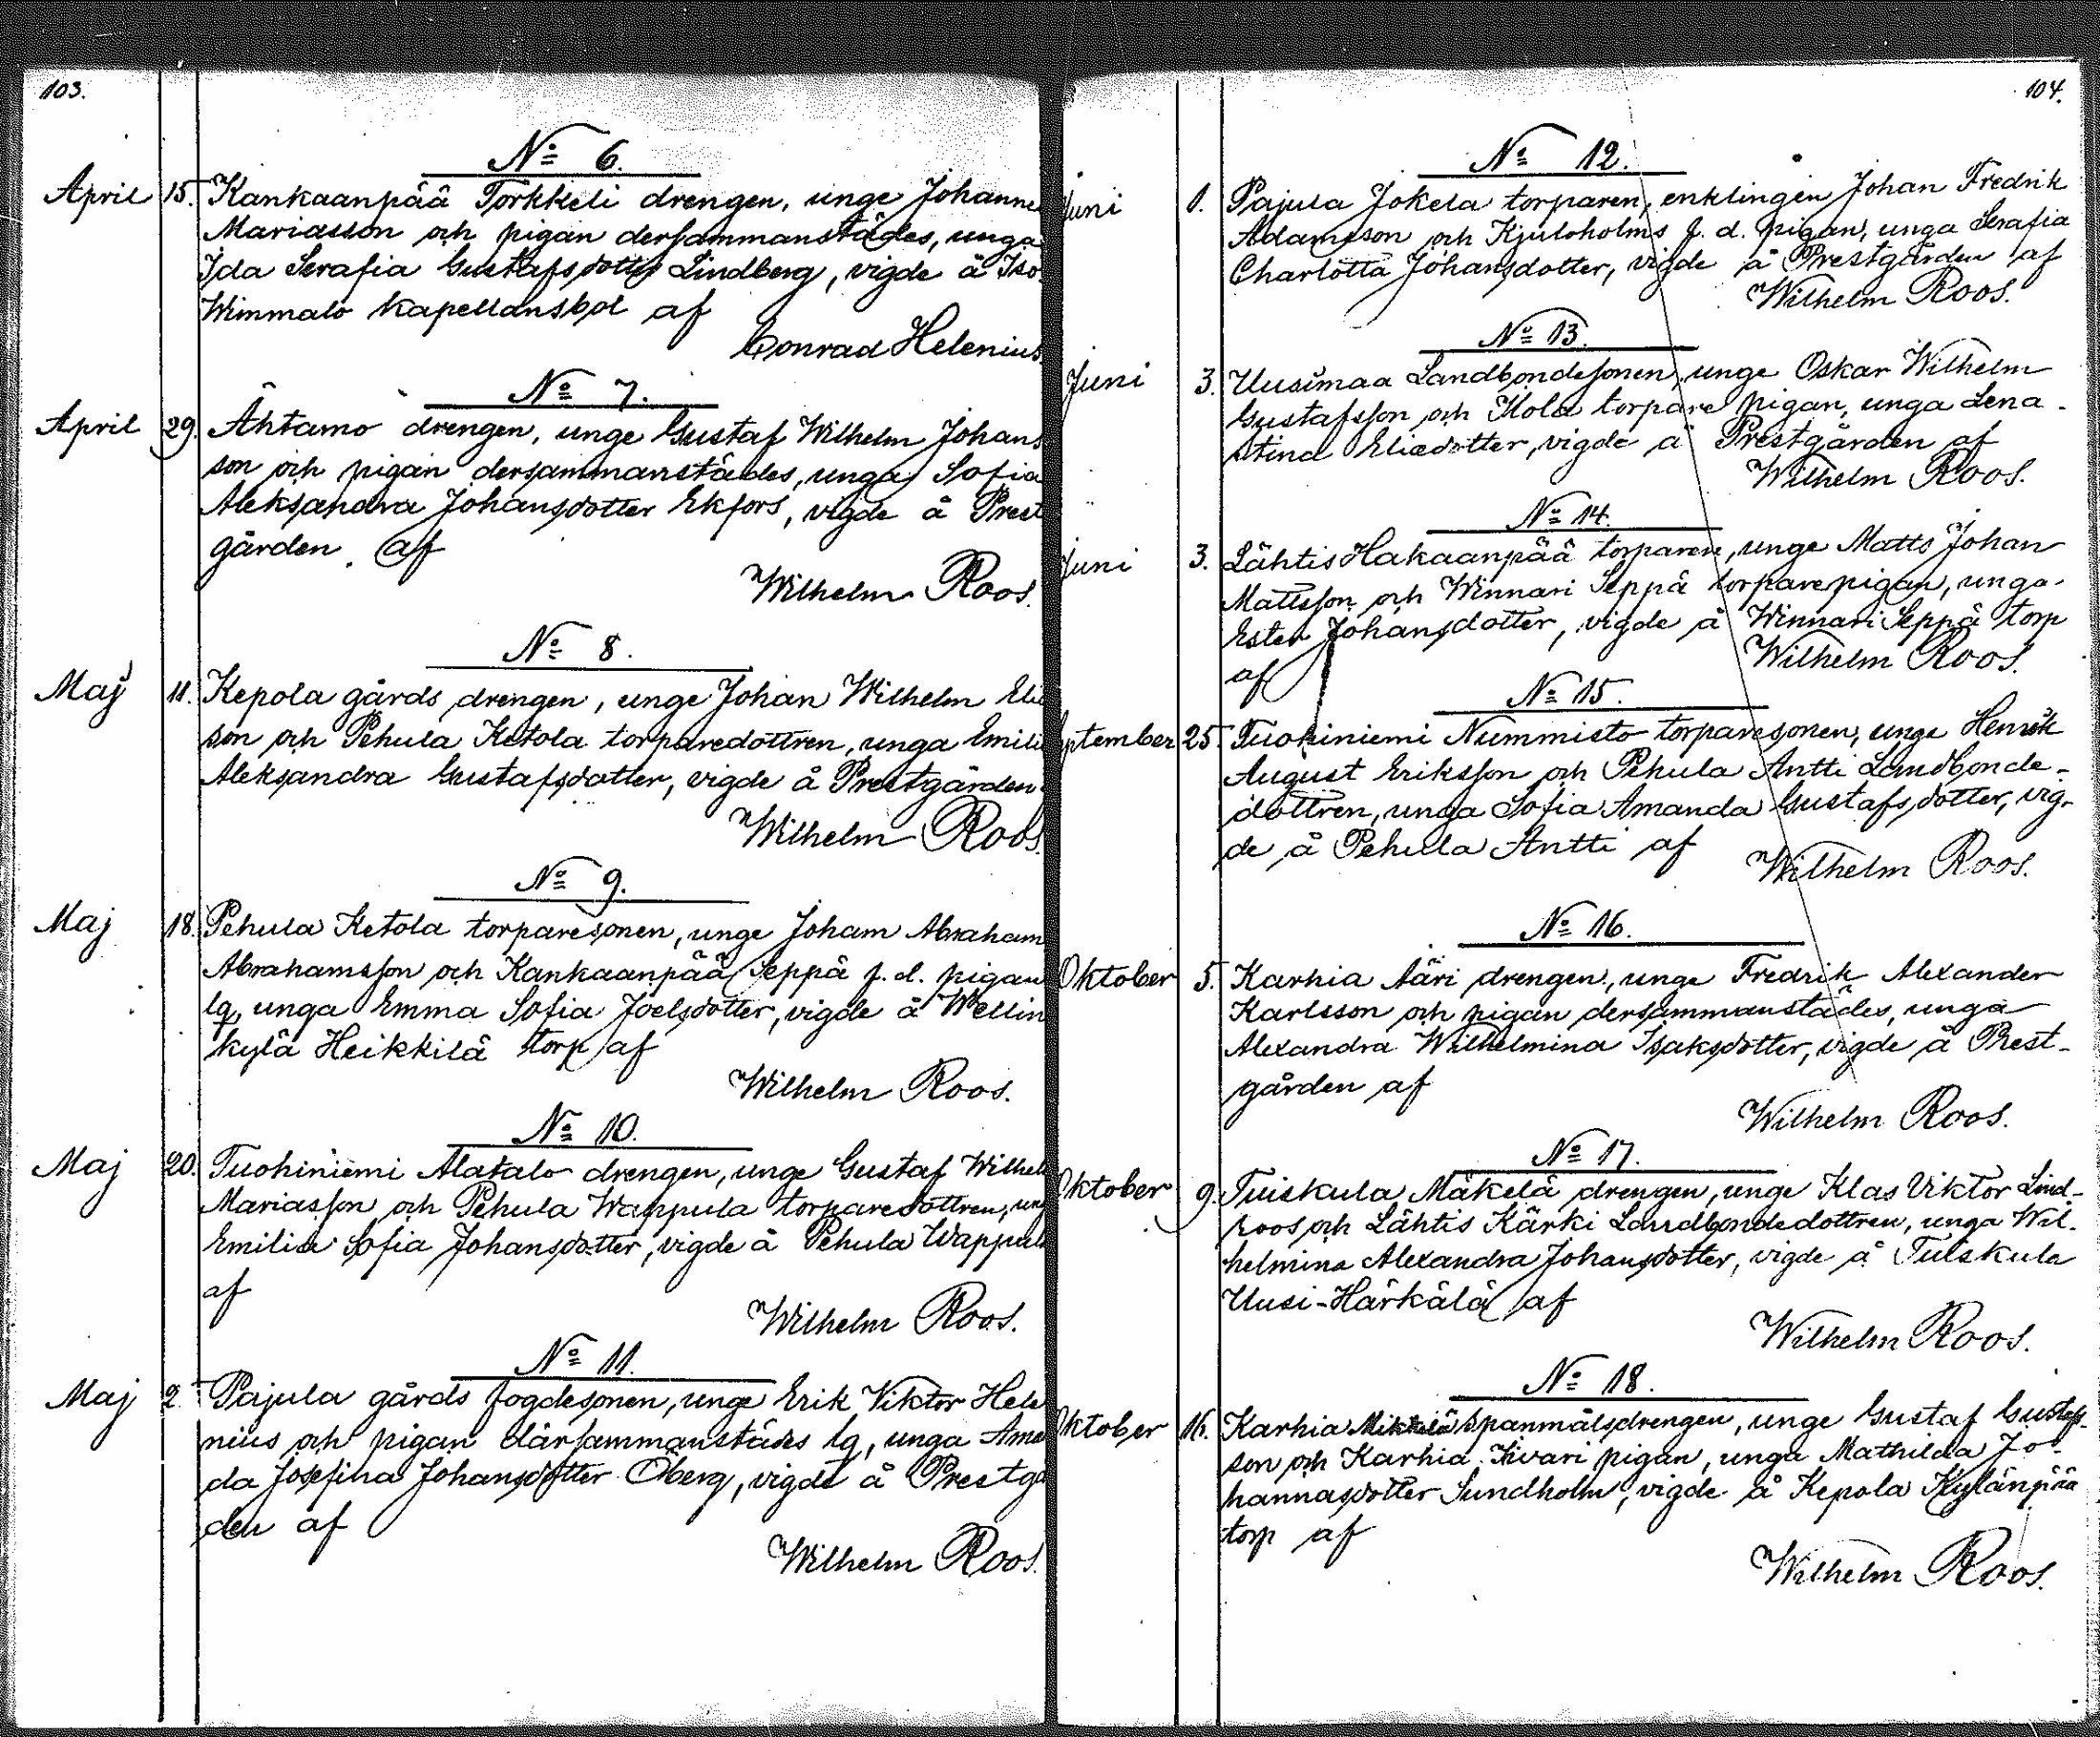 103.
No 6.
April 15. Kankaanpää Torkkeli drengen, unge Johanne
Mariasson och pigan dersammanstädes, unga
Ida Serafia Gustafsdotter Lindberg, vigde å Iso
Winmalo kapellansbol af
Conrad Helenius
No 7.
April 29. Ähtamo drengen, unge Gustaf Wilhelm Johans
son och pigan dersammanstädes, unga Sofia
Aleksandra Johansdotter Ekfors, vigde å Prest
gården af
Wilhelm Roos.
No 8.
Maj 11. Kepola gårds drengen, unge Johan Wilhelm Elia
son och Pehula Ketola torparedottren, unga Emili
Aleksandra Gustafsdotter, vigde å Prestgården
Wilhelm Roos.
No 9.
Maj 18. Pehula Ketola torparesonen, unge Joham Abraham
Abrahamsson och Kankaanpää Seppä f. d. pigan
lq, unga Emma Sofia Joelsdotter, vigde å Wellin
kylä Heikkilä torp af
Wilhelm Roos.
No 10.
Maj 20. Tuohiniemi Alatalo drengen, unge Gustaf Wilhel
Mariasson och Pehula Wappula torparedottren, un
Emilia Sofia Johansdotter, vigde å Pehula Wappul
af
Wilhelm Roos.
No 11.
Maj 2 Pajula gårds fogdesonen, unge Erik Viktor Hele
nius och pigan därsammanstädes lq, unga Ama
da Josefina Johansdotter Öberg, vigde å Prestgå
den af
Wilhelm Roos.
104.
No 12.
Juni 1. Pajula Jokela torparen, enklingen Johan Fredrik
Adamsson och Kjuloholms f. d. pigan, unga Serafia
Charlotta Johansdotter, vigde å Prestgården af
Wilhelm Roos.
No 13.
Juni 3. Uusimaa Landbondesonen unge Oskar Wilhelm
Gustafsson och Kola torpare pigan, unga Lena
Stina Eliasdotter, vigde å Prestgården af
Wilhelm Roos.
No 14.
Juni 3. Lähtis Hakaanpää torparen, unge Matts Johan
Mattsson och Winnari Seppä torparepigan, unga
Ester Johansdotter, vigde å Winnari Seppä torp
af Wilhelm Roos.
No 15.
eptember 25. Tuohiniemi Nummisto torparesonen, unge Henrik
August Eriksson och Pehula Antti Landbonde-
dottren, unga Sofia Amanda Gustafsdotter, vig-
de å Pehula Antti af
Wilhelm Roos.
No 16.
Oktober 5. KarhiaÄäri drengen, unge Fredrik Alexander
Karlsson och pigan dersammanstädes, unga
Alexandra Wilhelmina Isaksdotter, vigde å Prest-
gården af
Wilhelm Roos.
No 17.
Oktober 9. Tuiskula Mäkelä drengen, unge Klas Viktor Lind-
roos och Lähtis Kärki Landbondedottren, unga Wil-
helmina Alexandra Johansdotter, vigde å Tuiskula
Uusi-Härkälä af
Wilhelm Roos.
No 18.
Oktober 16. Karhia Mikkilä Spanmålsdrengen, unge Gustaf Gustafs-
son och Karhia Kivari pigan, unga Mathilda Jo-
hannasdotter Sundholm, vigde å Kepola Kylänpää
torp af
Wilhelm Roos.